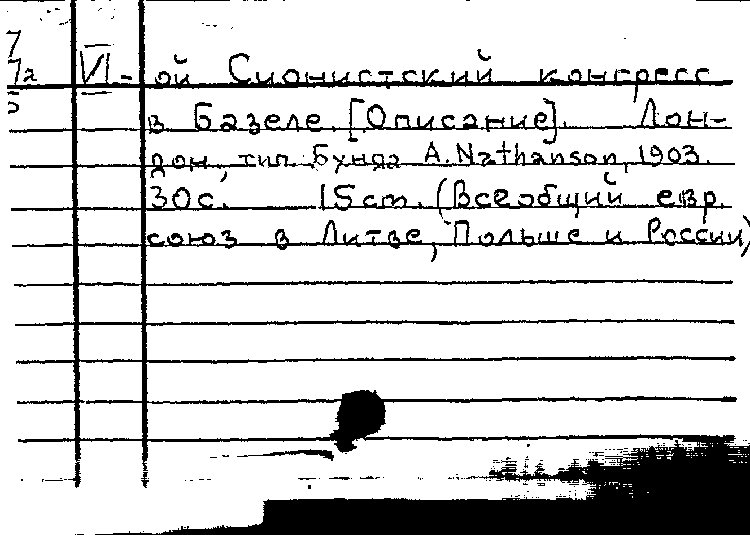 7
7а VI-ой Сионистский конгресс
5
в Базеле. [Описание]. Лон-
дон, тип. Бунда A. Nathanson, 1903.
30с. 15cm. (Всеобщий евр.
союз в Литве, Польше и России)